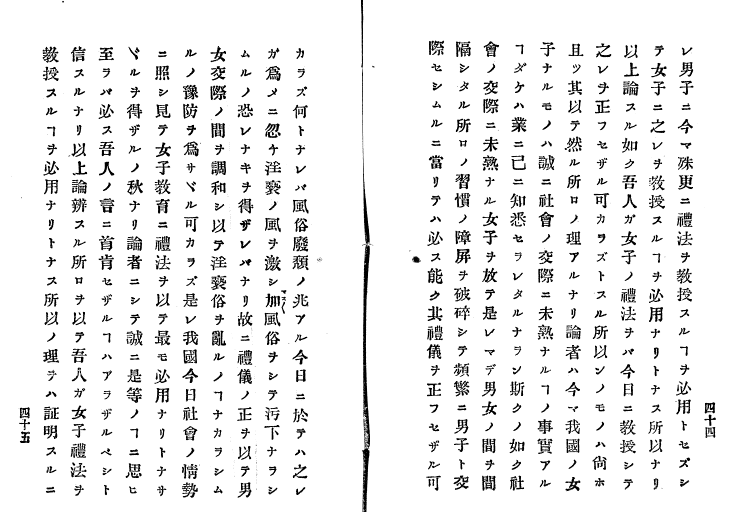 四十四
レ男子ニ今マ殊更ニ禮法ヲ教授スルヿヲ必用トセズシ
テ女子ニ之レヲ教授スルヿヲ必用ナリトナス所以ナリ
以上論スル如ク吾人ガ女子ノ禮法ヲバ今日ニ教授シテ
之レヲ正フセザル可カラズトスル所以ンノモノハ尙ホ
且ツ其以テ然ル所ロノ理アルナリ論者ハ今マ我國ノ女
子ナルモノハ誠ニ社會ノ交際ニ未熟ナルヿノ事實アル
ヿダケハ業ニ已ニ知悉セラレタルナラン斯クノ如ク社
會ノ交際ニ未熟ナル女子ヲ放テ是レマデ男女ノ間ヲ間
隔シタル所ロノ習慣ノ障屏ヲ破碎シテ頻繁ニ男子ト交
際セシムルニ當リテハ必ス能ク其禮儀ヲ正フセザル可
カラズ何トナレバ風俗廢頽ノ兆アル今日ニ於テハ之レ
ガ爲メニ忽ケ淫褻ノ風ヲ激シ加風俗ヲシテ汚下ナラシ
ムルノ恐レナキヲ得ザレバナリ故ニ禮儀ノ正ヲ以テ男
女交際ノ間ヲ調和シ以テ淫褻俗ヲ亂ルノヿナカラシム
ルノ豫防ヲ爲サヾル可カラズ是レ我國今日社會ノ情勢
ニ照シ見テ女子教育ニ禮法ヲ以テ最モ必用ナリトナサ
ヾルヲ得ザルノ秋ナリ論者ニシテ誠ニ是等ノヿニ思ヒ
至ラバ必ス吾人ノ言ニ首肯セザルヿハアラザルベシト
信スルナリ以上論辨スル所ロヲ以テ吾人ガ女子禮法ヲ
教授スルヿヲ必用ナリトナス所以ノ理ヲハ証明スルニ
四十五